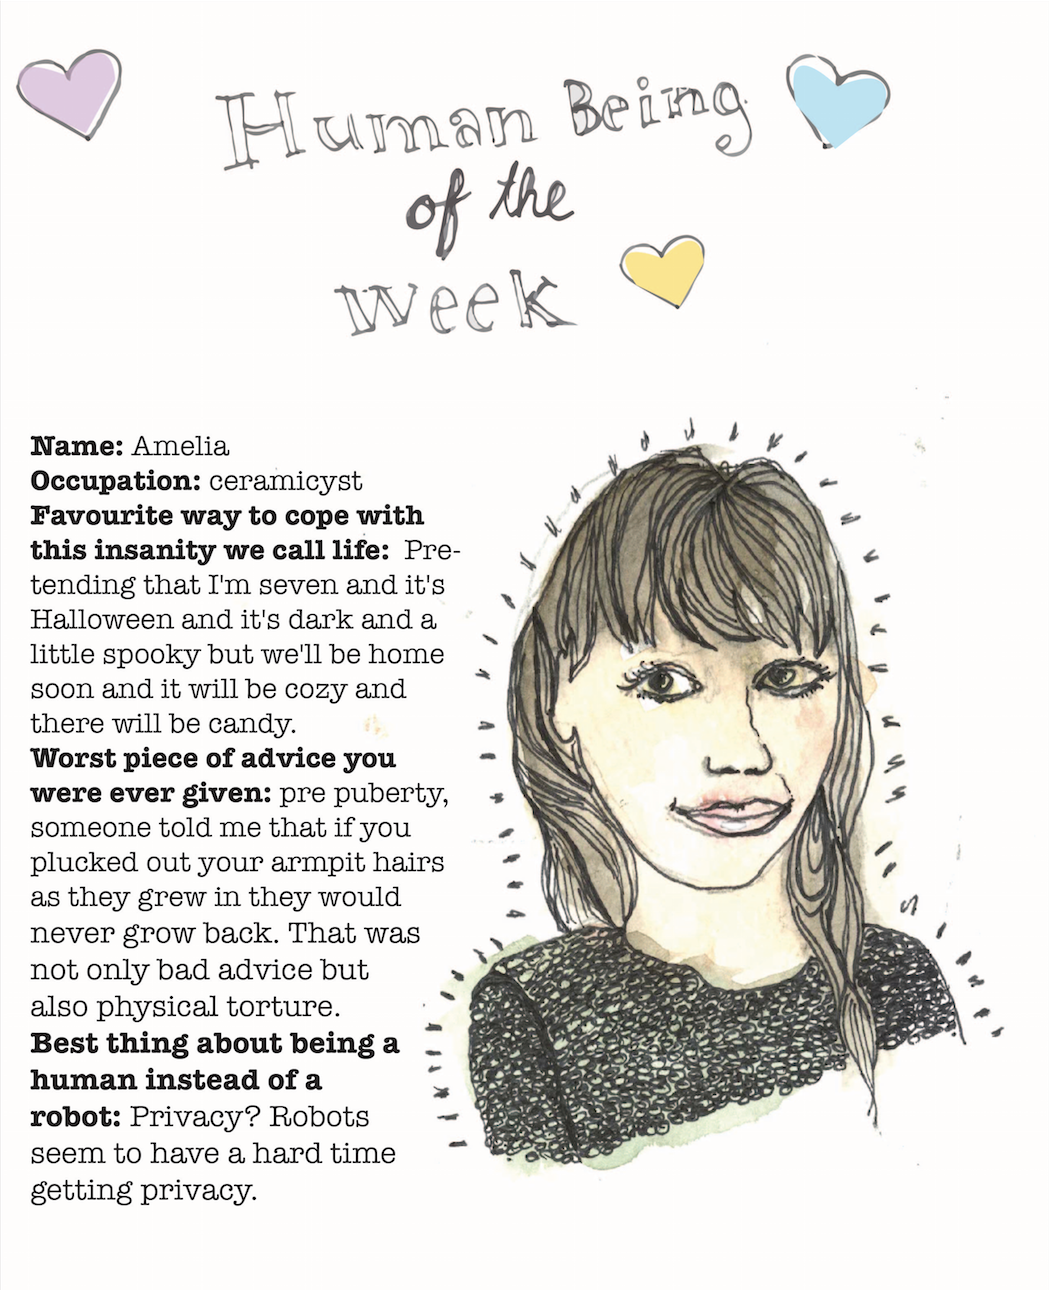 Human Being
of the
week
Name: Amelia
Occupation: ceramicyst
Favourite way to cope with
this insanity we call life: Pre-
tending that I'm seven and it's
Halloween and it's dark and a
little spooky but we'll be home
soon and it will be cozy and
there will be candy.
Worst piece of advice you
were ever given: pre puberty,
someone told me that if you
plucked out your armpit hairs
as they grew in they would
never grow back. That was
not only bad advice but
also physical torture.
Best thing about being a
human instead of a
robot: Privacy? Robots
seem to have a hard time
getting privacy.